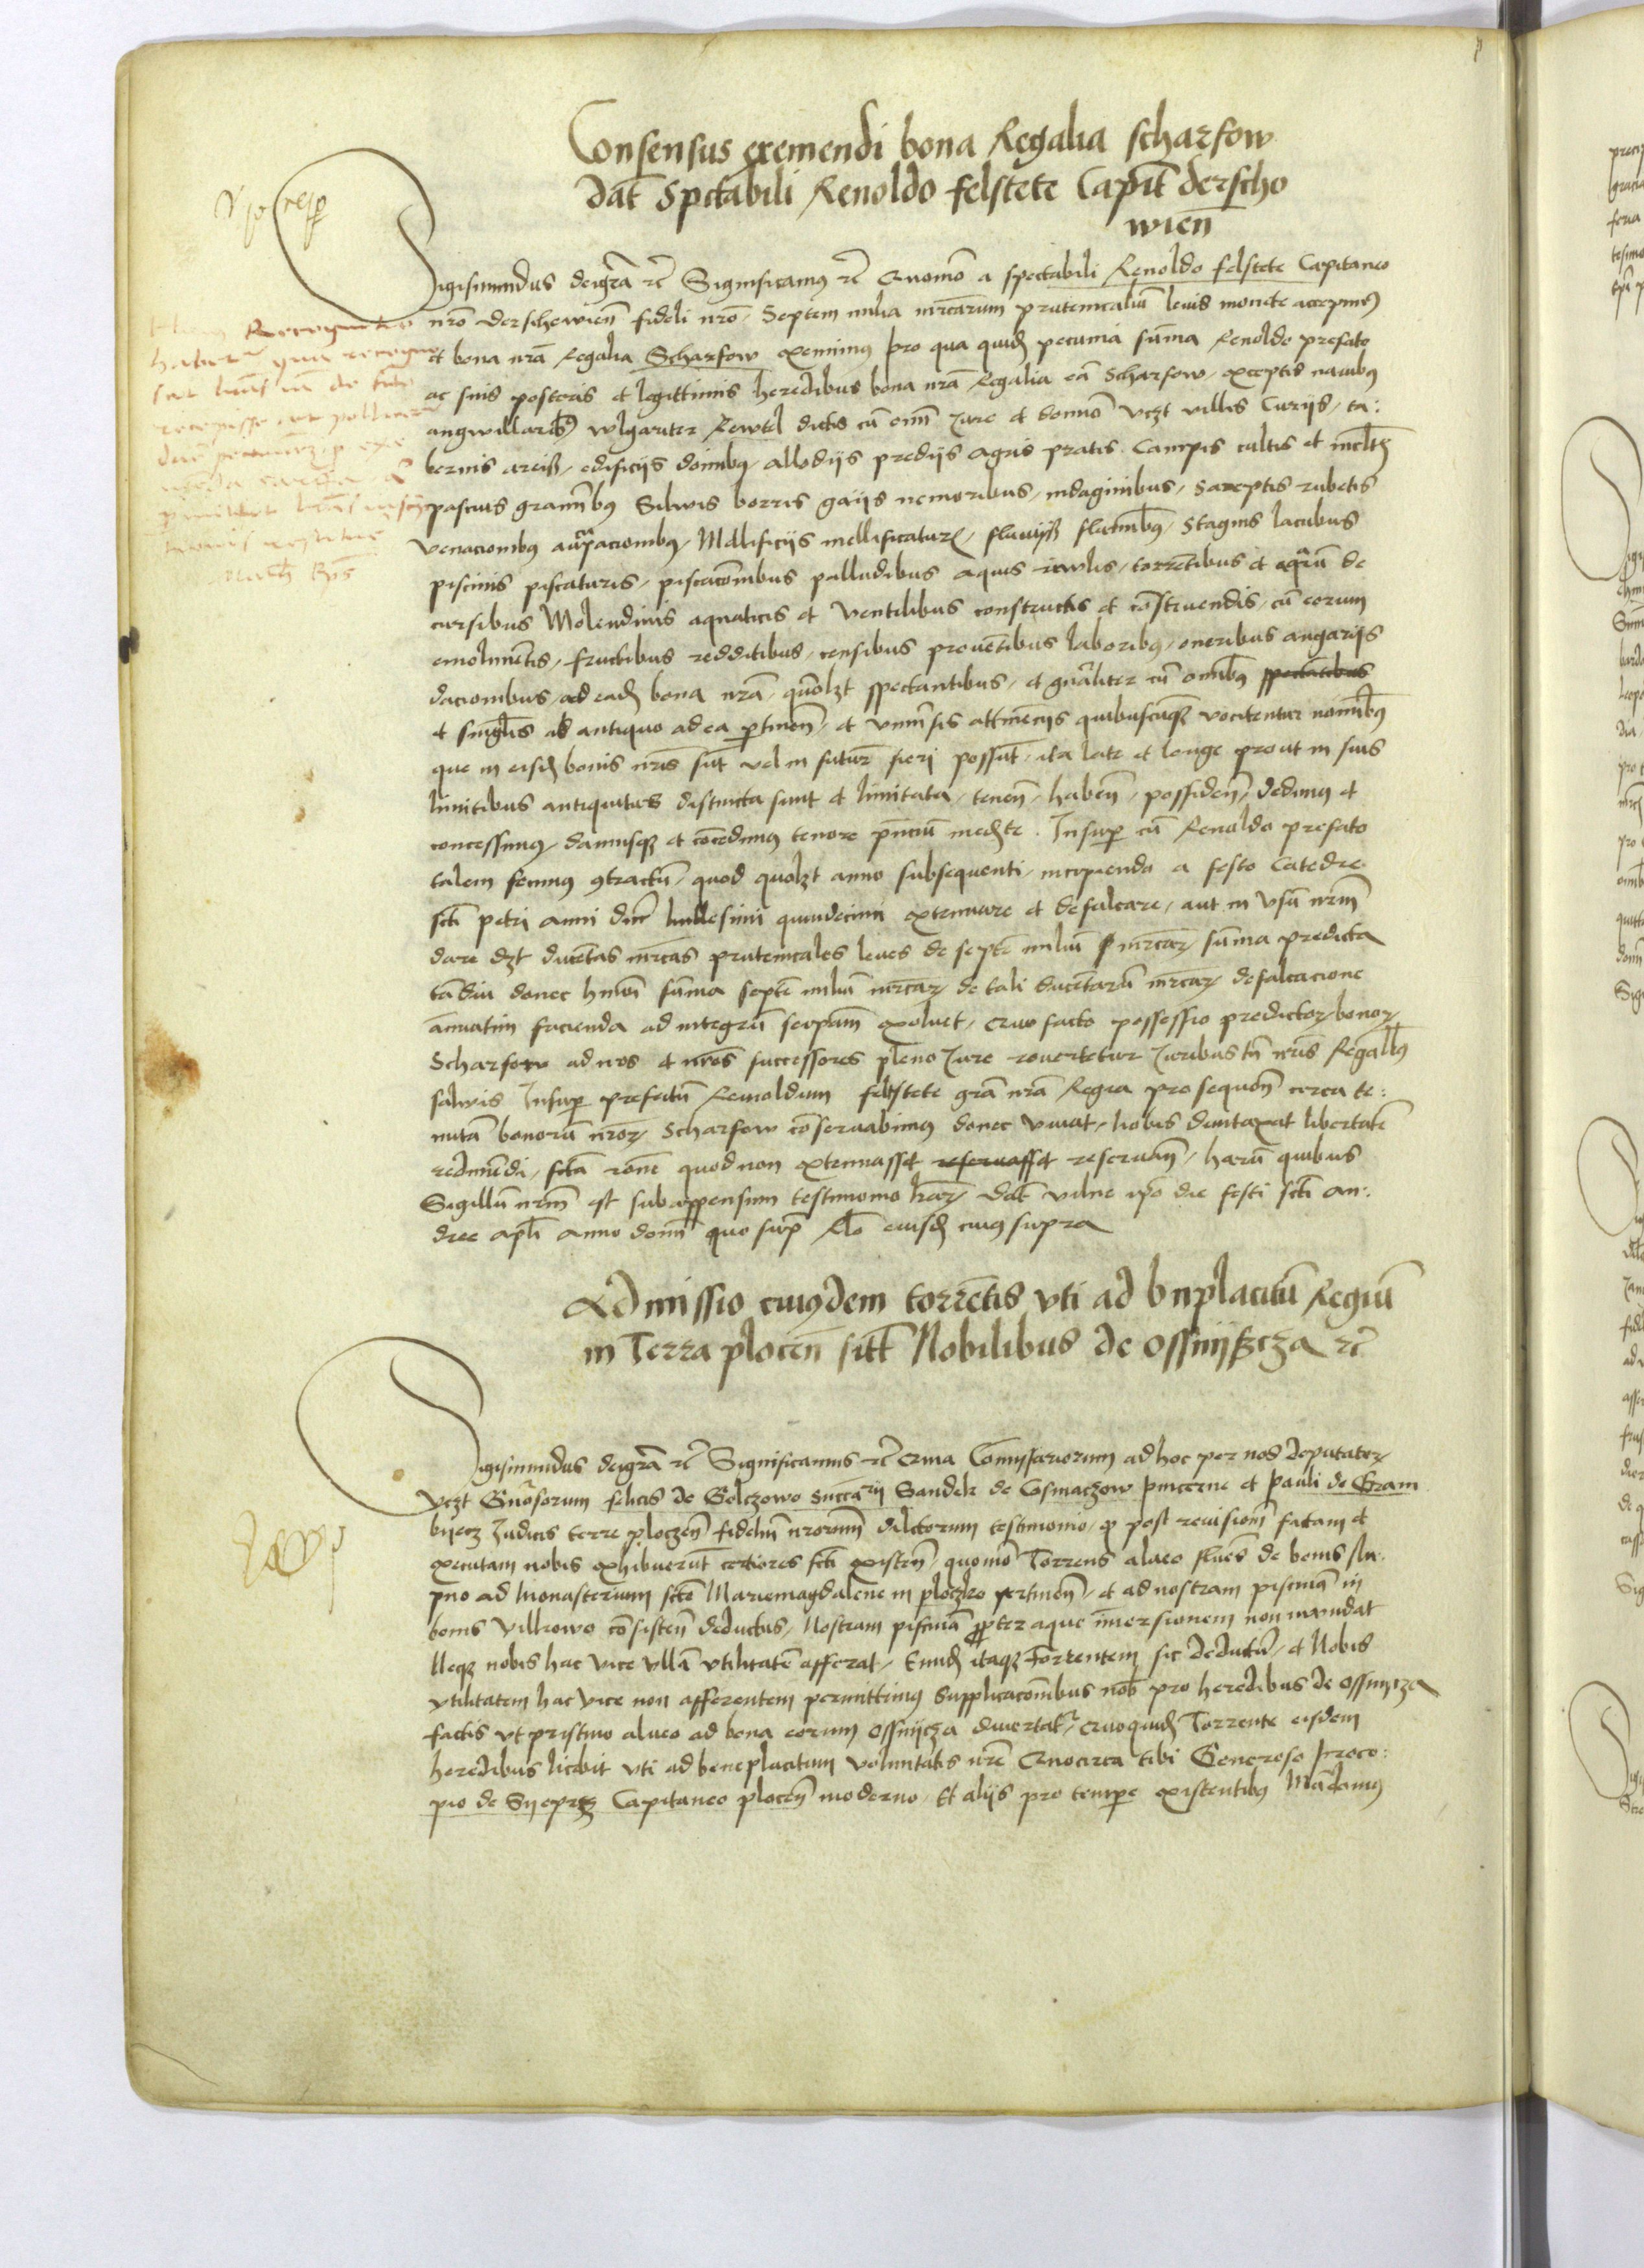 Consensus exemendi bona Regalia scharfow
dat Spctabili Renoldo felstete Capit derscho
wien
Sigismundus deigra rc Significamus rc Quomo a spectabili Renoldo felstete Capitaneo
nro derschewien fideli nro Septem milia mrcarum prutenicaliu levis monete accepimus
et bona nra Regalia Scharfow exemimus pro qua quid pecunia suma Renoldo prefato
ac suis posteris et legittimis heredibus bona nra Regalia ea Scharfow exceptis navibus
angwillaribus wlgariter Rewtel dictis cu omi Jure et domio vczt villis Curijs ta:
bernis areis edificijs doimbus allodijs predijs agris pratis Campis cultis et incltis
pascuis gramibus Silvis borris gaijs nemoribus indaginibus Saxeptis rubetis
venacionibus aucupacionibus Mellificijs mellificatur fluvijs flumibus Stagnis lacubus
piscinis piscaturis piscacoibus palludibus aquis rivulis torretibus et aquaru de
cursibus Molendinis aquaticis et ventilibus constructis et construendis cu eorum
emolimetis fructibus redditibus censibus provetibus laboribus oneribus angarijs
dacionibus ad ead bona nra quolzt spectantibus et gnaliter cu omibus spectatibus
et singlis ab antiquo ad ea ptinen et vnuisis attinencijs quibuscuqz vocitentur noimbus
que in eisd bonis nris sut vel in futur fieri possut ita late et longe prout in suis
limitibus antiquitus distincta sunt et limitata tenen haben possiden dedimus et
concessimus damusqz et cocedimus tenore pnciu medte Insup cu Renoldo prefato
talem fecimus contractu quod quolzt anno subsequenti incipiendo a festo Catedre
scti petri anni dni millesimi quindecimi extenuare et defalcare aut in vsu nrm
dare dzt ducetas mrcas prutenicales leves de septe miliu mrcar suma predicta
tadiu donec hmoi suma septe miliu mrcar de tali ducetaru mrcar defalcacione
anuatim facienda ad integru seipam exoluet quo facto possessio predictor bonor
Scharfow ad nos et nros successores pleno Jure revertetur Juribus tn nris Regalibus
salvis Insup prefatu Renoldum felstete gra nra Regia prosequen circa te:
nuta bonoru nror Scharfow coservabimus donec vivat nobis duntaxat libertate
redimendi scta rone quod non extenuasset reservasset reservan haru quibus
Sigillu nrm est subappensum testimonio lrar dat vilne ipo die festi scti an:
dree apli anno domi quo sup Rlo eiusd cuius supra
Admissio cuiusdem torretis vti ad bnplacitu Regiu
in Terra plocen sitt Nobilibus de Ossnijszcza rc
Sigismundus deigra rc Significamus rc Quia Comissariorum ad hoc per nos deputator
vczt Gnosorum felicis de Golczowo succarij Sandek de Cosmaczow pincerne et Pauli de Gram
bijecz Judicis terre ploczen fideliu nrorum dilectorum testimonio post revisiom factam et
executam nobis exhibuerut certiores scti existen quomo Torrens alveo flues de bonis slu
pno ad Monasterium scte Mariemagdalene in ploczko pertinen et ad nostram piscina in
bonis Villiowo cosisten deductus Nostram piscina ppter aque inversionem non inundat
Neqz nobis hac vice vlla vtilitate afferat Eund itaqz Torrentem sic deductu et Nobis
vtilitatem hac vice non afferentem permittimus Supplicacoibus nob pro heredibus de Ossnycza
factis vt pristino alveo ad bona eorum Ossnijcza divertat Quoquid Torrente eisdem
heredibus licebit vti ad beneplacitum voluntatis nre Quocirca tibi Generoso Proco:
pio de Sijeprcz Capitaneo plocen moderno Et alijs pro tempe existentibus Madamus